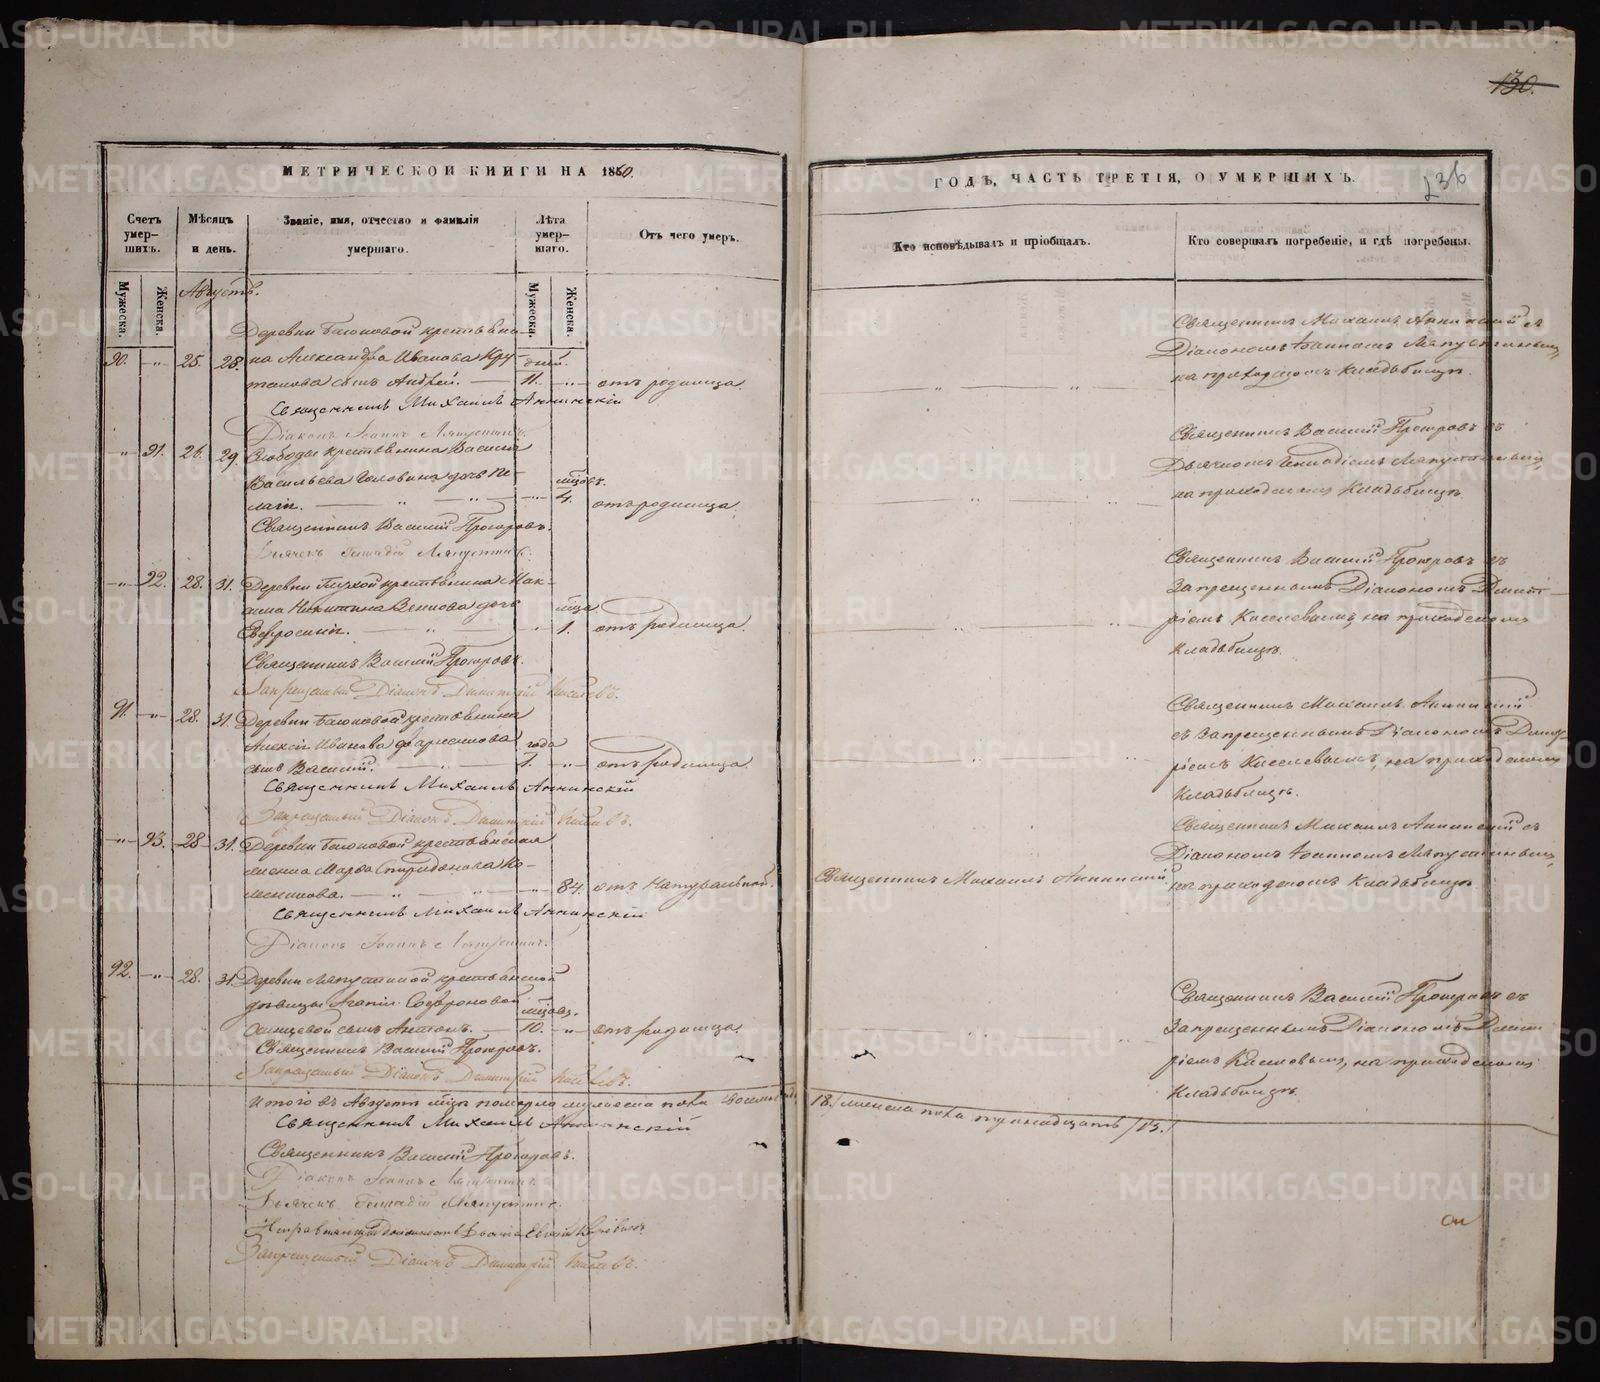 130.
136
МЕТРИЧЕСКОЙ КНИГИ НА 1860.
ГОДЪ, ЧАСТЬ ТРЕТІЯ, О УМЕРШИХЪ.
Счетъ умер-шихъ.
Мѣсяцъ и день.
Званіе, имя, отчество и фамилія умершаго.
Лѣта умер-шаго.
Отъ чего умеръ.
Кто исповѣдывалъ и пріобщалъ.
Кто совершалъ погребеніе, и гдѣ погребены.
Мужеска.
Женска.
Мужеска.
Женска.
Августъ.
Деревни крестьяни-
90. -"- 25. 28. на Александра Иванова Кру- дней.
сынъ Андрей. 11. -"- отъ родимца.
Священникъ Михаилъ Аннинскій
Діаконъ Іоаннъ Ляпустинъ.
-"- 91. 26. 29. Слободы крестьянина Василія
Васильева Головина дочь Пе- мѣсяцъ.
лагія. -"- 4. отъ родимца.
Священникъ Василій
Дьячекъ Геннадій Ляпустинъ.
-"- 92. 28. 31. Деревни крестьянина Мак-
сима Никитина дочь мѣсяца
Евфросинія. -"- 1. отъ родимца.
Священникъ Василій
Запрещенный Діаконъ Димитрій Киселевъ.
91. -"- 28. 31. Деревни крестьянина
Алексія Иванова года
сынъ Василій. 1. -"- отъ родимца.
Священникъ Михаилъ Аннинскій
Запрещенный Діаконъ Димитрій Киселевъ.
-"- 93. 28. 31. Деревни крестьянская
женка Марѳа Спиридонова Ко-
лесникова. -"- 84. отъ натуральной.
Священникъ Михаилъ Аннинскій
Діаконъ Іоаннъ Ляпустинъ.
92. -"- 28. 31. Деревни Ляпустиной крестьянской
дѣвицы Агапіи Софроновой мѣсяц.
сынъ Антонъ. 10. -"- отъ родимца.
Священникъ Василій
Запрещенный Діаконъ Димитрій Киселевъ.
Итого въ Августѣ мѣсяцѣ померло мужеска пола восемнадц.
Священникъ Михаилъ Аннинскій
Священникъ Василій
Діаконъ Іоаннъ Ляпустинъ.
Дьячекъ Геннадій Ляпустинъ.
Исправляющій должность
Запрещенный Діаконъ Димитрій Киселевъ.
Священникъ Михаилъ Аннинскій съ
Діакономъ Іоанномъ Ляпустинымъ,
на приходскомъ кладбищѣ.
Священникъ Василій съ
Дьячкомъ Геннадіемъ Ляпустинымъ,
на приходскомъ кладбищѣ.
Священникъ Василій съ
запрещеннымъ Діакономъ Димит-
ріемъ Киселевымъ, на приходскомъ
кладбищѣ.
Священникъ Михаилъ Аннинскій
съ запрещеннымъ Діакономъ Димит-
ріемъ Киселевымъ, на приходскомъ
кладбищѣ.
Священникъ Михаилъ Аннинскій
Священникъ Михаилъ Аннинскій съ
Діакономъ Іоанномъ Ляпустинымъ,
на приходскомъ кладбищѣ.
Священникъ Василій съ
запрещеннымъ Діакономъ Димит-
ріемъ Киселевымъ, на приходскомъ
кладбищѣ.
18. / женска пола тринадцать /13./
METRIKI.GASO-URAL.RU